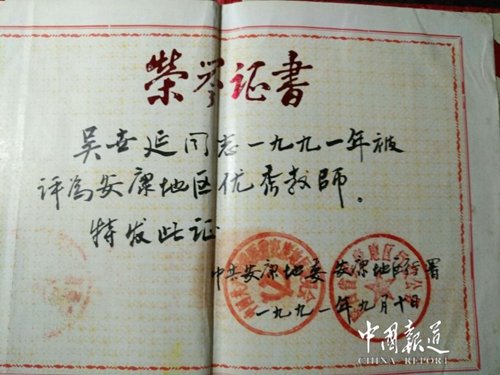 荣誉证书
吴世延同志一九九一年被
评为安康地区优秀教师。
特发此证
中共安康地委 安康地区行署
一九九一年九月十日
中国报道
CHINA REPORT